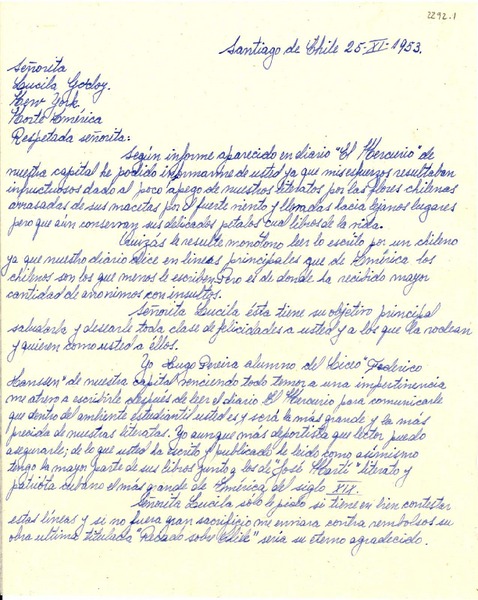 2292.1
Santiago de Chile 25-XI-1953.
Señorita
Lucila Godoy.
New York.
Norte América
Respetada señorita:
Según informe aparecido en diario "El Mercurio" de
nuestra capital he podido informarme de usted ya que mis esfuerzos resultaban
infructuosos dado al poco apego de nuestros literatos por las flores chilenas
arrasadas de sus macetas por el fuerte viento y llevadas hacia lejanos lugares
pero que aún conservan sus delicados petalos cual libros de la vida.
Quizás le resulte monótono leer lo escrito por un chileno
ya que nuestro diario dice en lineas principales que de América los
chilenos son los que menos le escriben. Pero es de donde ha recibido mayor
cantidad de anonimos con insultos.
Señorita Lucila ésta tiene su objetivo principal
saludarla y desearle toda clase de felicidades a usted y a los que la rodean
y quieren como usted a éllos.
Yo Hugo Pereira alumno del Liceo "Federico
Hanssen" de nuestra capital venciendo todo temor a una impertinencia
me atrevo a escribirle después de leer el diario El Mercurio para comunicarle
que dentro del ambiente estudiantil usted es y será la más grande y la más
preciada de nuestras literatas. Yo aunque más deportista que lector puedo
asegurarle; de lo que usted ha escrito y publicado he leido como asimismo
tengo la mayor parte de sus libros junto a los de "José Martí" literato y
patriota cubano el más grande de América del siglo XIX.
Señorita Lucila solo le pido si tiene en bien contestar
estas líneas y si no fuera gran sacrificio me enviara contra rembolsos su
obra ultima titulada "Recado sobre Chile" seria su eterno agradecido.